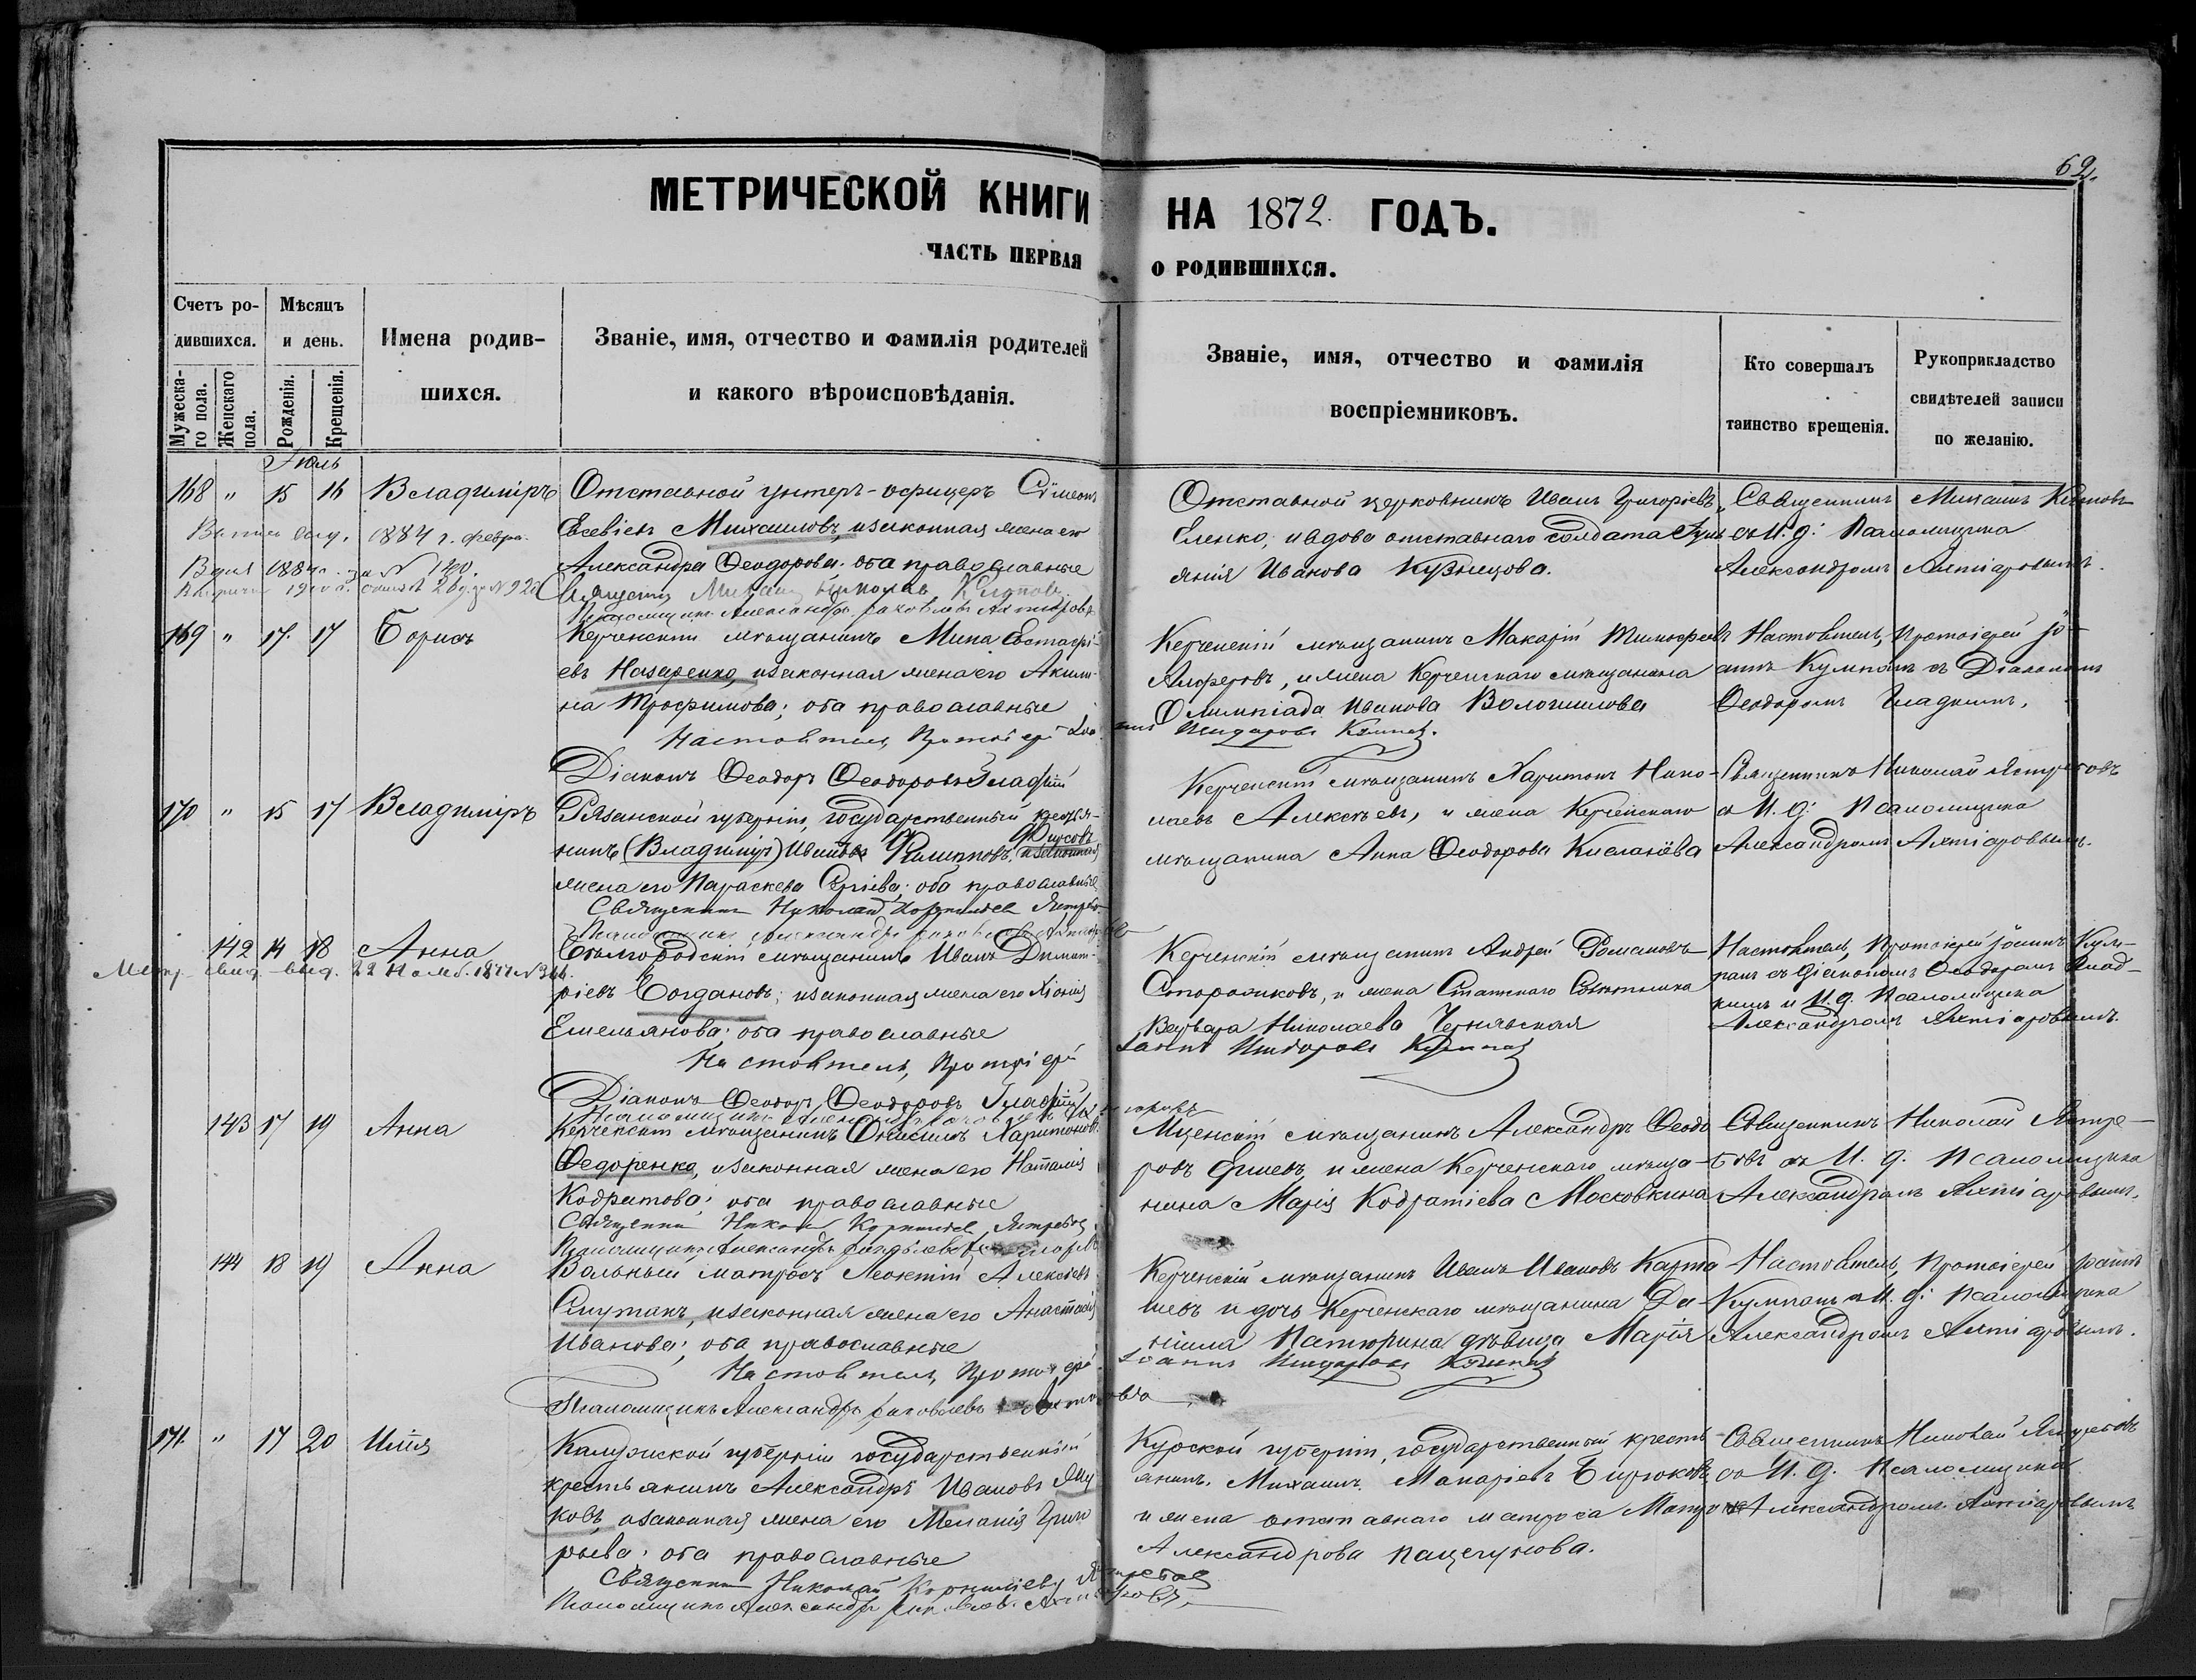 62.
МЕТРИЧЕСКОЙ КНИГИ НА 1872 ГОДЪ.
ЧАСТЬ ПЕРВАЯ О РОДИВШИХСЯ.
Счетъ ро-
дившихся.
Мужеска-
го пола.
Женскаго
пола.
Мѣсяцъ
и день.
Рожденія.
Крещенія.
Имена родив-
шихся.
Званіе, имя, отчество и фамилія родителей
и какого вѣроисповѣданія.
Званіе, имя, отчество и фамилія
воспріемниковъ.
Кто совершалъ
таинство крещенія.
Рукоприкладство
свидѣтелей записи
по желанію.
Іюль
168 " 15 16 Владиміръ
Отставной унтеръ-офицеръ Сѵмеонъ
Евсевіевъ Михаиловъ, и законная жена его
Александра Ѳеодорова; оба православные
Отставной церковникъ Иванъ Григоріевъ
Еленко, и вдова отставнаго солдата
Иванова Кузнецова.
Священникъ Михаилъ
съ И. д: Псаломщика
Александромъ Ахтіаровымъ.
1884 г. февр.
169 " 17. 17 Борисъ
Керченскій мѣщанинъ Мина Евстафі-
евъ Назаренко, и законная жена его Акили-
на Трофимова; оба православные
Настоятель, Протоіерей
Діаконъ Ѳеодоръ Ѳеодоровъ Гладкій
Керченскій мѣщанинъ Макарій Тимофеевъ
Алферовъ, и жена Керченскаго мѣщанина
Олимпіада Иванова
Настоятель, Протоіерей Іо-
аннъ Кумпанъ съ Діакономъ
Ѳеодоромъ Гладкимъ.
170 " 15 17 Владиміръ
Рязанской губерніи, государственный кресть-
нинъ (Владиміръ) Ивановъ Филипповъ, Фирсовъ и законная
жена его Параскева Сергіева; оба православные
Священникъ Николай Корниліевъ Ястребовъ
Керченскій мѣщанинъ Харитонъ Нико-
лаевъ Алексѣевъ, и жена Керченскаго
мѣщанина Анна Ѳеодорова
Священникъ Николай Ястребовъ
съ И. д: Псаломщика
Александромъ Ахтіаровымъ.
142 14 18 Анна
Бѣлгородскій мѣщанинъ Иванъ Димит-
ріевъ Богдановъ; и законная жена его Хіонія
Емельянова; оба православные
Настоятель, Протоіерей Іоаннъ
Діаконъ Ѳеодоръ Ѳеодоровъ Гладкій
Керченскій мѣщанинъ Андрей Романовъ
и жена Статскаго Совѣтника
Варвара Николаева Чернявская
Настоятель, Протоіерей Іоаннъ Кум-
панъ съ Діакономъ Ѳеодоромъ Глад-
кимъ и И. д. Псаломщика
Александромъ Ахтіаровымъ.
143 17 19 Анна
Керченскій мѣщанинъ Онисимъ Харитоновъ
Ѳедоренко, и законная жена его Наталія
Кодратова; оба православные
Священникъ Николай Корниліевъ Ястребовъ
Мценскій мѣщанинъ Александръ Ѳеодо-
ровъ Ершевъ, и жена Керченскаго мѣща-
нина Марія Кодратіева Московкина
Священникъ Николай Ястре-
бовъ съ И. д. Псаломщика
Александромъ Ахтіаровымъ.
144 18 19 Анна
Вольный матросъ Леонтій Алексѣевъ
и законная жена его Анастасія
Иванова; оба православные
Настоятель, Протоіерей Іоаннъ
Псаломщикъ Александръ Іаковлевъ Ахтіаровъ
Керченскій мѣщанинъ Иванъ Ивановъ Карта-
шевъ и дочь Керченскаго мѣщанина Да-
ніила дѣвица Марія
Настоятель, Протоіерей Іоаннъ
Кумпанъ съ И. д: Псаломщика
Александромъ Ахтіаровымъ.
171. " 17 20 Илія
Калужской губерніи государственный
крестьянинъ Александръ Ивановъ
ковъ, и законная жена его Меланія Григо
рьева; оба православные
Священникъ Николай Корниліевъ Ястребовъ
Псаломщикъ Александръ Іаковлевъ Ахтіаровъ
Курской губерніи, государственный кресть
янинъ, Михаилъ Макаріевъ Бирюковъ
и жена отставнаго матроса
Александрова
Священникъ Николай Ястребовъ
съ И. д. Псаломщика
Александромъ Ахтіаровымъ